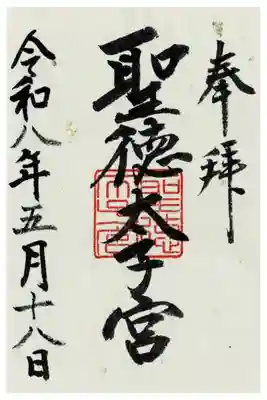 奉拝
聖徳太子宮
令和八年五月十八日